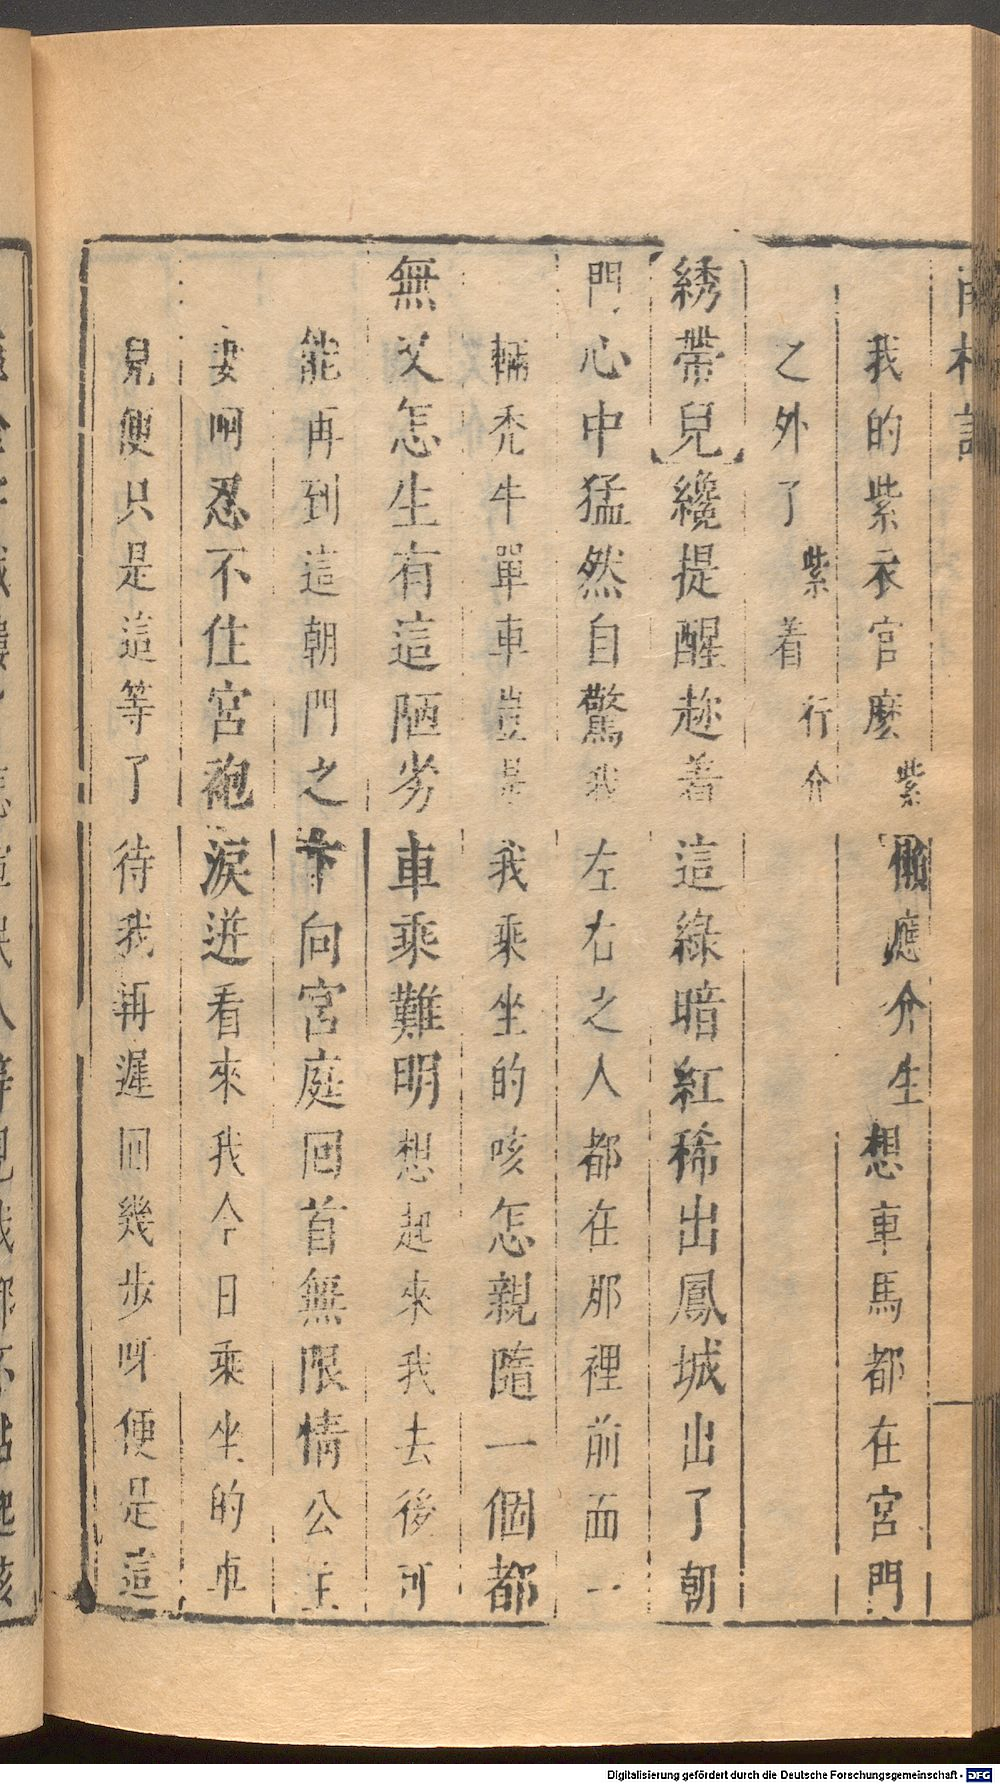 南柯記
我的紫衣官麼紫懶應介生想車馬都在宮門
之外了紫着行介
綉帶兒纔提醒趂着這綠暗紅稀出鳳城出了朝
門心中猛然自驚我左右之人都在那裡前面一
輛禿牛單車豈是我乘坐的咳怎親隨一個都
無又怎生有這陋劣車乘難明想起來我去後可
能再到這朝門之下向宮庭回首無限情公主
妻呵忍不住宮袍淚迸看來我今日乘坐的車
兒便只是這等了待我再遲回幾步呀便是這
Digitalisierung gefördert durch die Deutsche Forschungsgemeinschaft - DFG